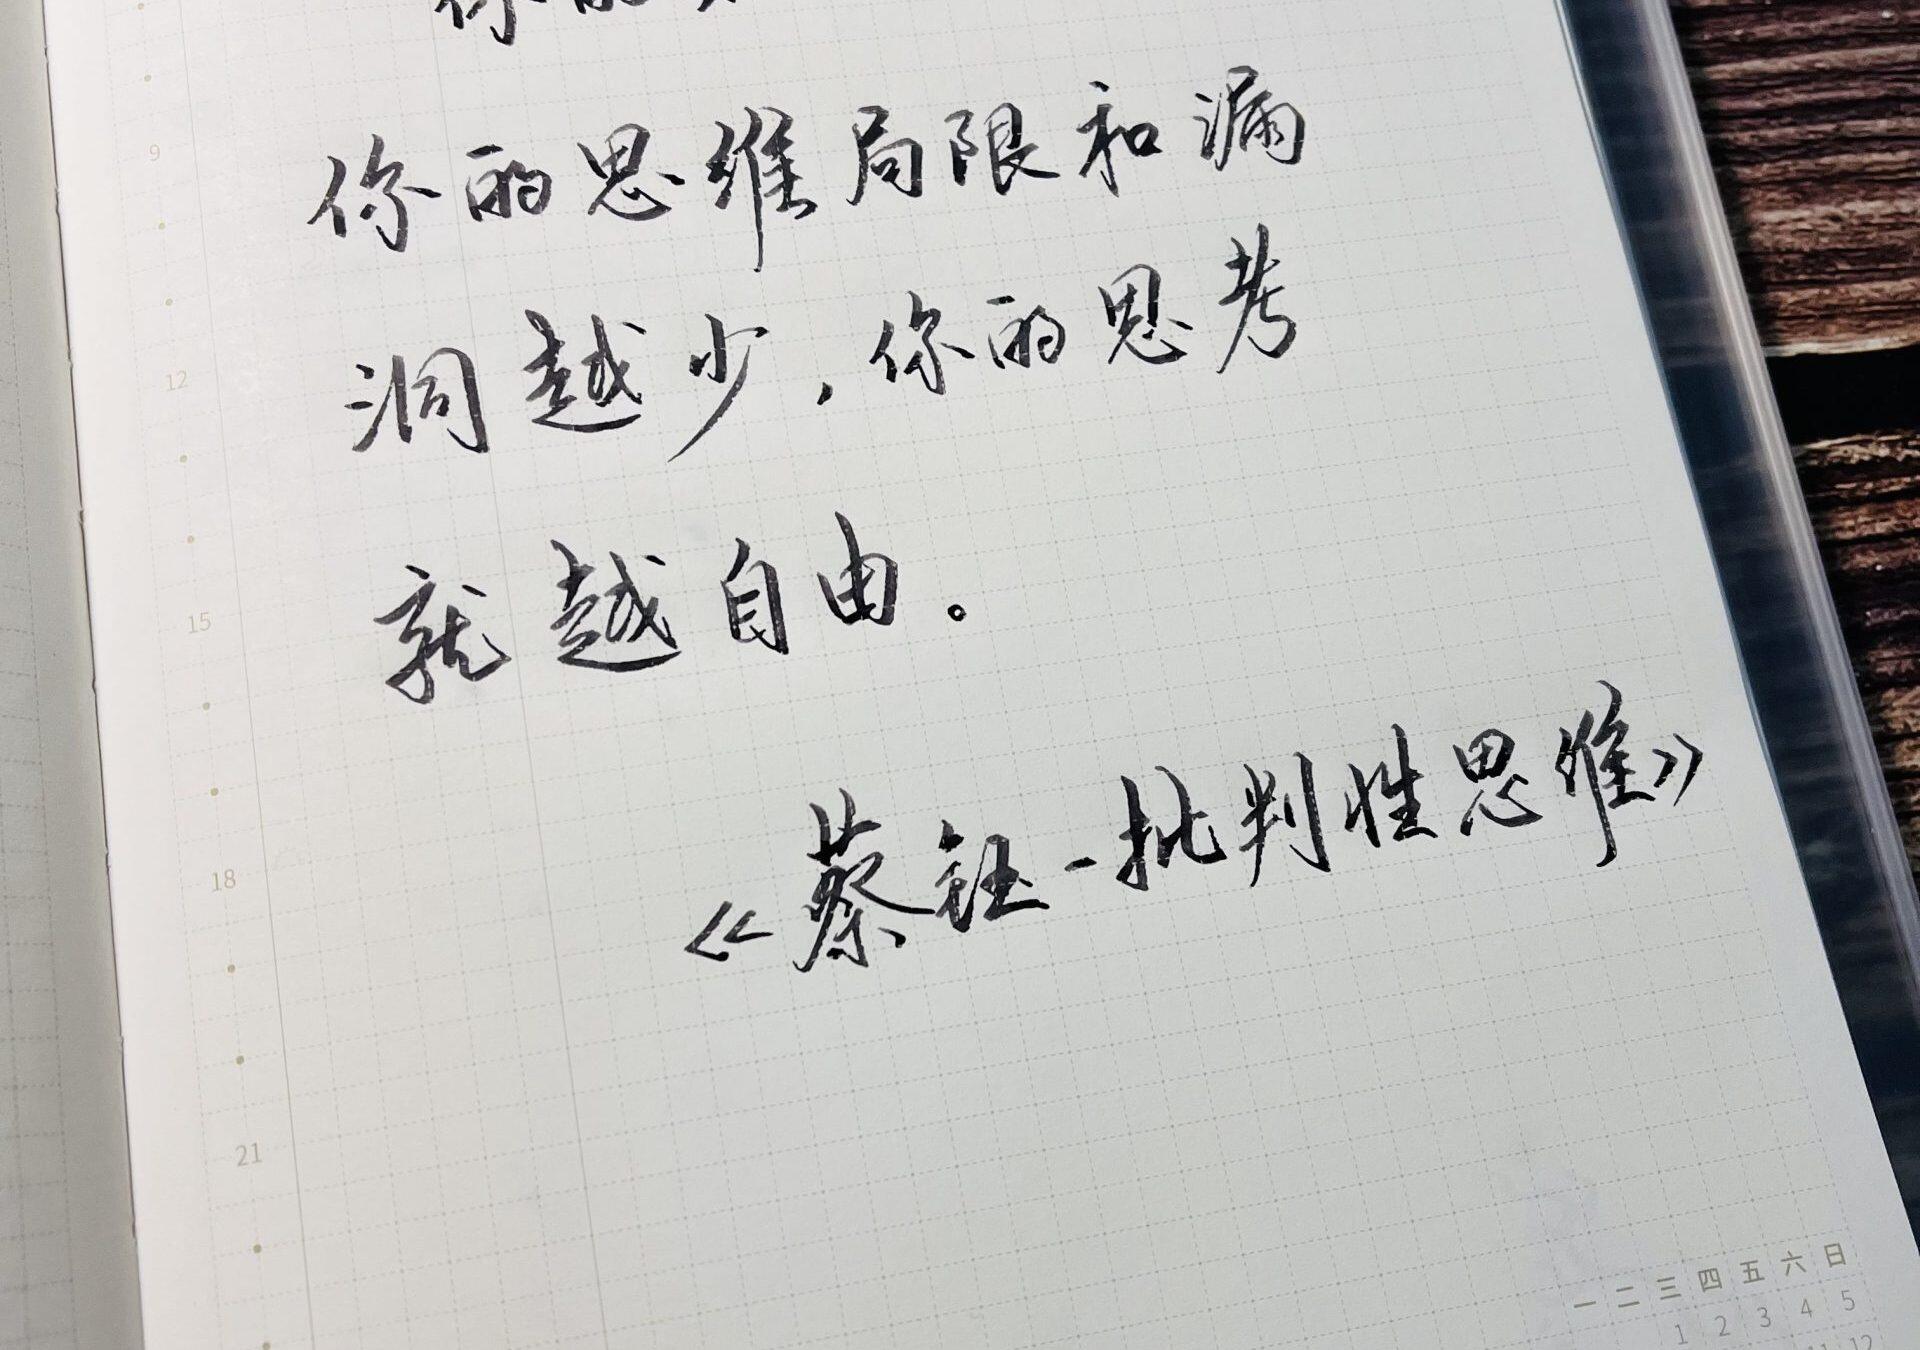 你的
你的思维局限和漏
洞越少,你的思考
就越自由。
《蔡钰-批判性思维》
9
12
15
18
21
一 二 三 四 五 六 日
1 2 3 4 5
11 12